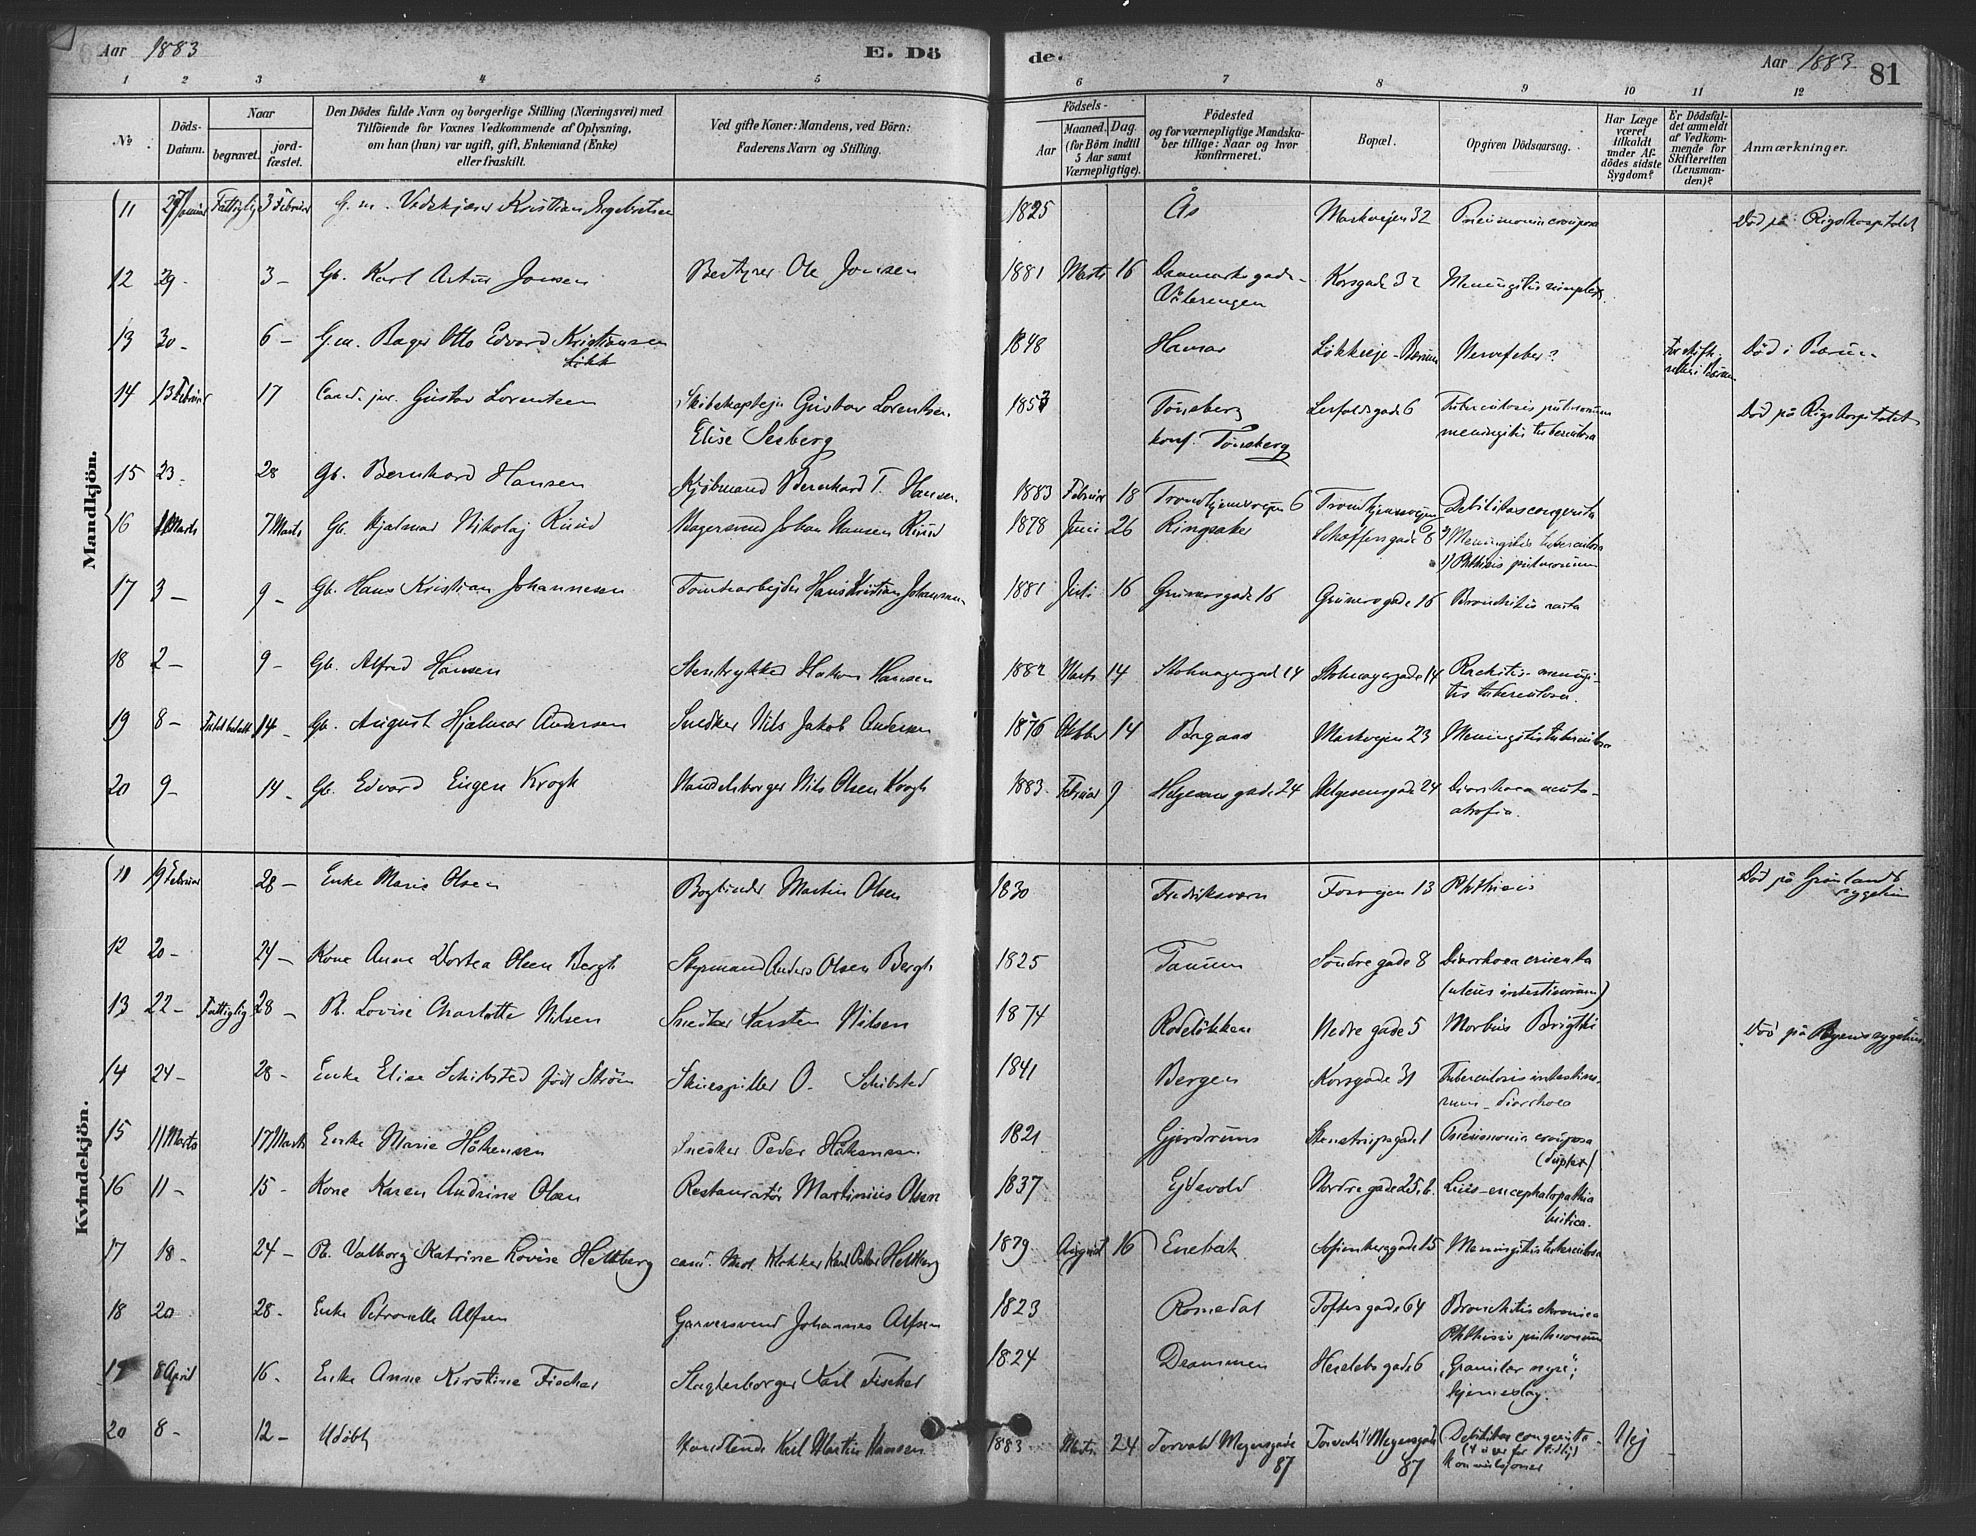 Aar 1883
E. Dö
de.
Aar 1883
81
1 2 3 4 5 6 7 8 9 10 11 12
No
Döds-Datum.
Naar
begravet.
jord-fæstet.
Den Dödes fulde Navn og borgerlige Stilling (Næringsvei) med
Tilföiende for Voxnes Vedkommende af Oplysning,
om han (hun) var ugift, gift, Enkemand (Enke)
eller fraskilt.
Ved gifte Koner: Mandens, ved Börn:
Faderens Navn og Stilling.
Födsels-
Aar
Maaned. Dag.
(for Börn indtil
5 Aar samt
Værnepligtige).
Födested
og for værnepligtige Mandska-
ber tillige: Naar og hvor
konfirmeret.
Bopæl.
Opgiven Dödsaarsag.
Har Læge
været
tilkaldt
under Af-
dödes sidste
Sygdom?
Er Dödsfal-
det anmeldt
af Vedkom-
mende for
Skifteretten
(Lensman-
den)?
Anmærkninger.
Mandkjön.
11 Fattiglig 3 Februar G. m. Kristian 1825 Ås Markvejen 32 Pneumonia crouposa Död på Rigshospitalet
12 29 - 3 - Gb. Karl Artur Jonsen Bestyrer Ole Jonsen 1881 Marts 16 Danmarksgade - Korsgade 32 Meningitis simplex
Vålerengen
13 30 - 6 - G.m. Bager Otto Edvard Kristiansen 1848 Hamar Løkkeje - Bærum Nervefeber? Död i Bærum
14 13 Februar 17 Cand. jur. Gustav Lorentsen Skibskaptejn Gustav Lorentsen 1853 Tönsberg 6 Tuberculosis pulmonum Död på Rigshospitalet
Elise Sesberg konf. Tønsberg meningitis tuberculosa
15 23 - 28 Gb. Bernhard Hansen Kjøbmand Bernhard T. Hansen 1883 Februar 18 Trondhjemsvejen 6 Trondhjemsvejen 6 Debilitas congenita
16 Marts 7 Marts Gb. Hjalmar Nikolaj Ruud Johan Hansen Ruud 1878 Juni 26 Ringsaker 8 2) Meningitis tuberculosa
1) Phthisis pulmonum
17 3 - 9 - Gb. Hans Kristian Johannesen Tomtearbejder Hans Kristian Johannesen 1881 Juli 16 Grünersgade 16 Grünersgade 16 Bronchitis
18 2 - 9 - Gb. Alfred Hansen Stentrykker Håkon Hansen 1882 Marts 14 Stolmagergade 14 Stolmagergade 14 Rachitis - menngi-
tis tuberculosa.
19 8 - 14 - Gb. August Hjalmar Andersen Snedker Nils Jakob Andersen 1876 Oktber 14 Markvejen 23 Meningitis tuberculosa
20 9 - 14 - Gb. Edvard Eugen Krogh Handelsborger Nils Olsen Krogh 1883 Februar 9 Helgesensgade 24 Helgesensgade 24 Diarrhoea acuta -
atrofia.
Kvindekjön.
11 19 Februar 28 - Enke Marie Olsen Bogbinder Martin Olsen 1830 Fredriksværn Fossvejen 13 Phthisis Död på Grönlands
sygehus
12 20 - 24 - Kone Anne Dortea Olsen Bergh Styrmand Anders Olsen Bergh 1825 Tanum Söndregade 8 Diarrhoea cruenta
(ulcus intestinorum)
13 22 - Fattiglig 28 - Pb. Lovise Charlotte Nilsen Snedker Karsten Nilsen 1874 Rodeløkken Nedregade 5 Morbus Brightii Död på Byens sygehus
14 24 - 28 - Enke Elise Schibsted född Ström Skuespiller O. Schibsted 1841 Bergen Korsgade 31 Tuberculosis intestino-
rum - diarrhoea
15 11 Marts 17 Marts Enke Marie Håkensen Snedker Peder Håkensen 1821 Gjerdrum 1 Pneumonia crouposa
(duplex)
16 11 - 15 - Kone Karen Andrine Olsen Restauratör Martinius Olsen 1837 Ejdsvold Nordregade 25.b. Lues - encephalopathia
luetica.
17 18 - 24 - Pb. Valborg Katrine Lovise Heltberg cand. theol. Klokker Karl Oskar Heltberg 1879 August 16 Enebak Sofienberggade 15 Meningitis tuberculosa
18 20 28 - Enke Petronelle Alfsen Garversvend Johannes Alfsen 1823 Romedal Toftesgade 64 Bronchitis chronica
Phthisis pulmonum
19 8 April 16 - Enke Anne Kirstine Fischer Slagterborger Karl Fischer 1824 Drammen Heselebsgade 6 "Granulær nyre";
hjerneslag.
20 8 - 12 - Udöbt Handlende Karl Martin Hansen 1883 Marts 24 Torvald Meyersgade Torvald Meyersgade Debilitas congenita - Nej
87 87 (4 uger for tidlig)
Konvulsjoner